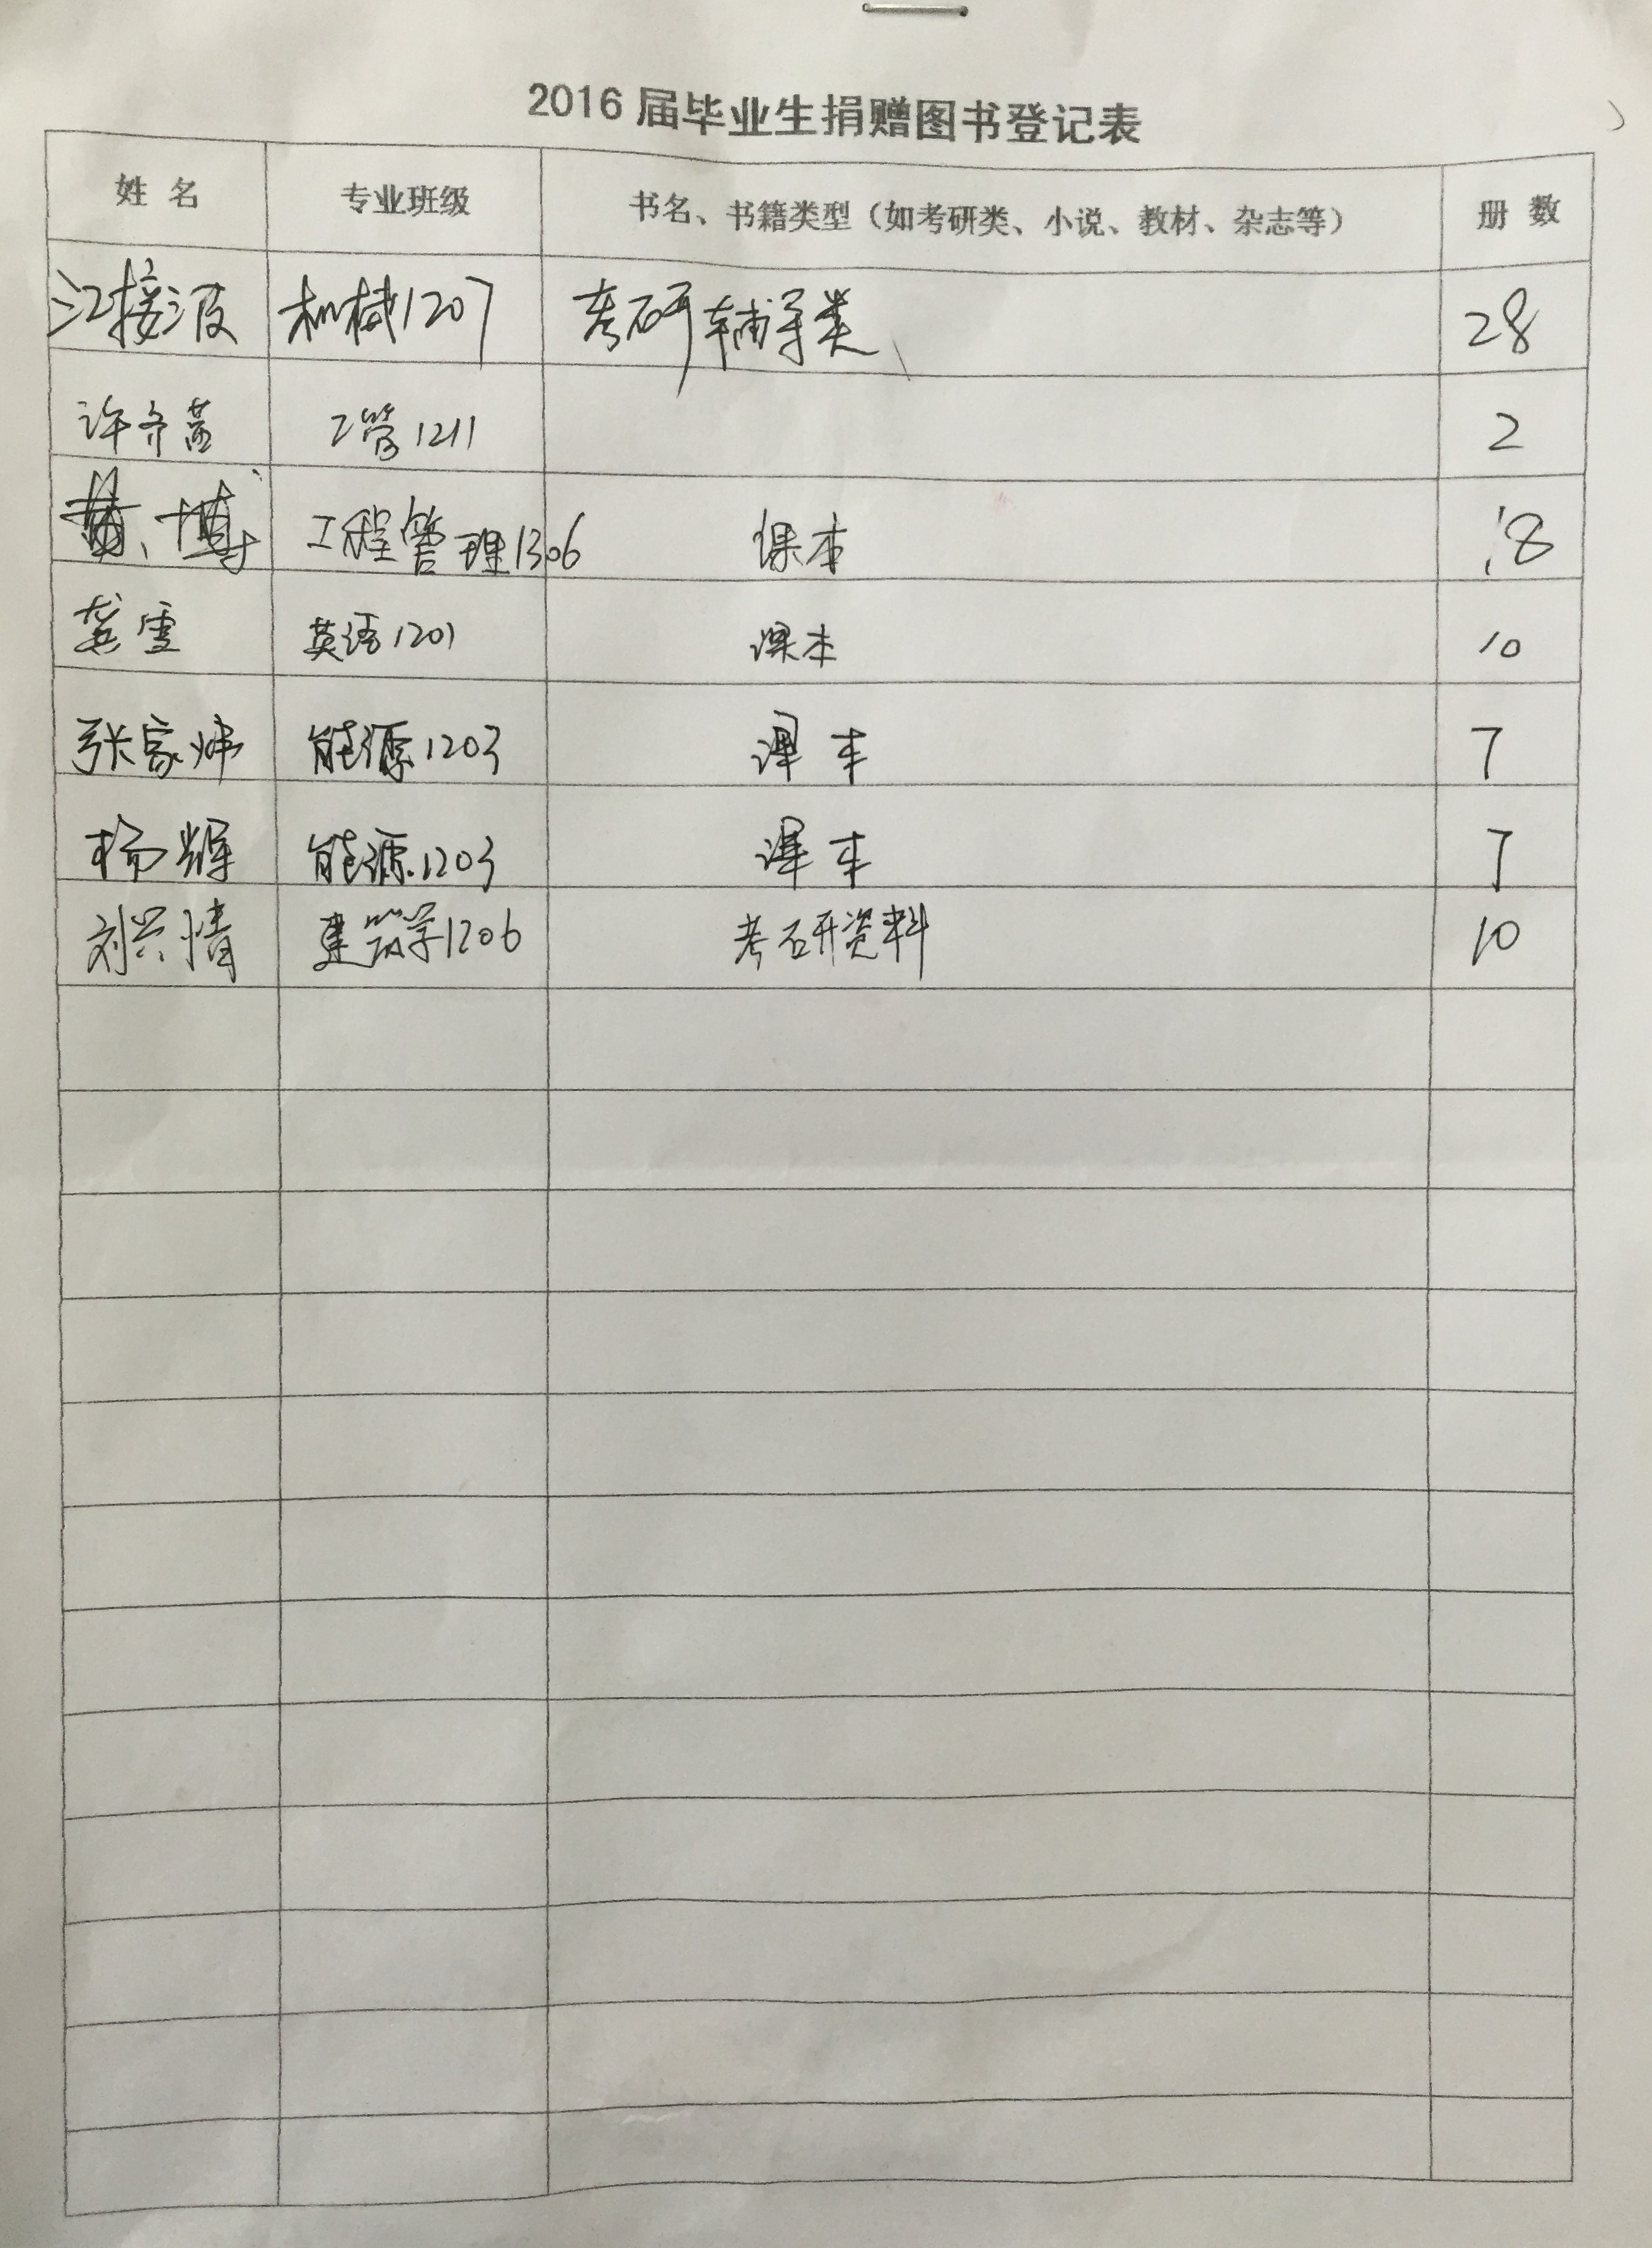 2016 届毕业生捐赠图书登记表
姓 名 专业班级 书名、书籍类型（如考研类、小说、教材、杂志等） 册 数
江接波 机械1207 考研辅导类 28
许齐 工管1211 2
黄博 工程管理1306 课本 18
龚雪 英语1201 课本 10
张家炜 能源1203 课本 7
杨辉 能源1203 课本 7
刘兴情 建筑学1206 考研资料 10